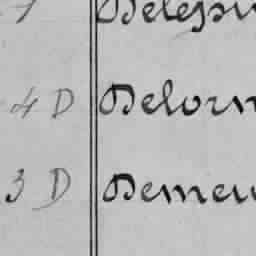 1 Delesp
4 D Delorm
3 D Demeu